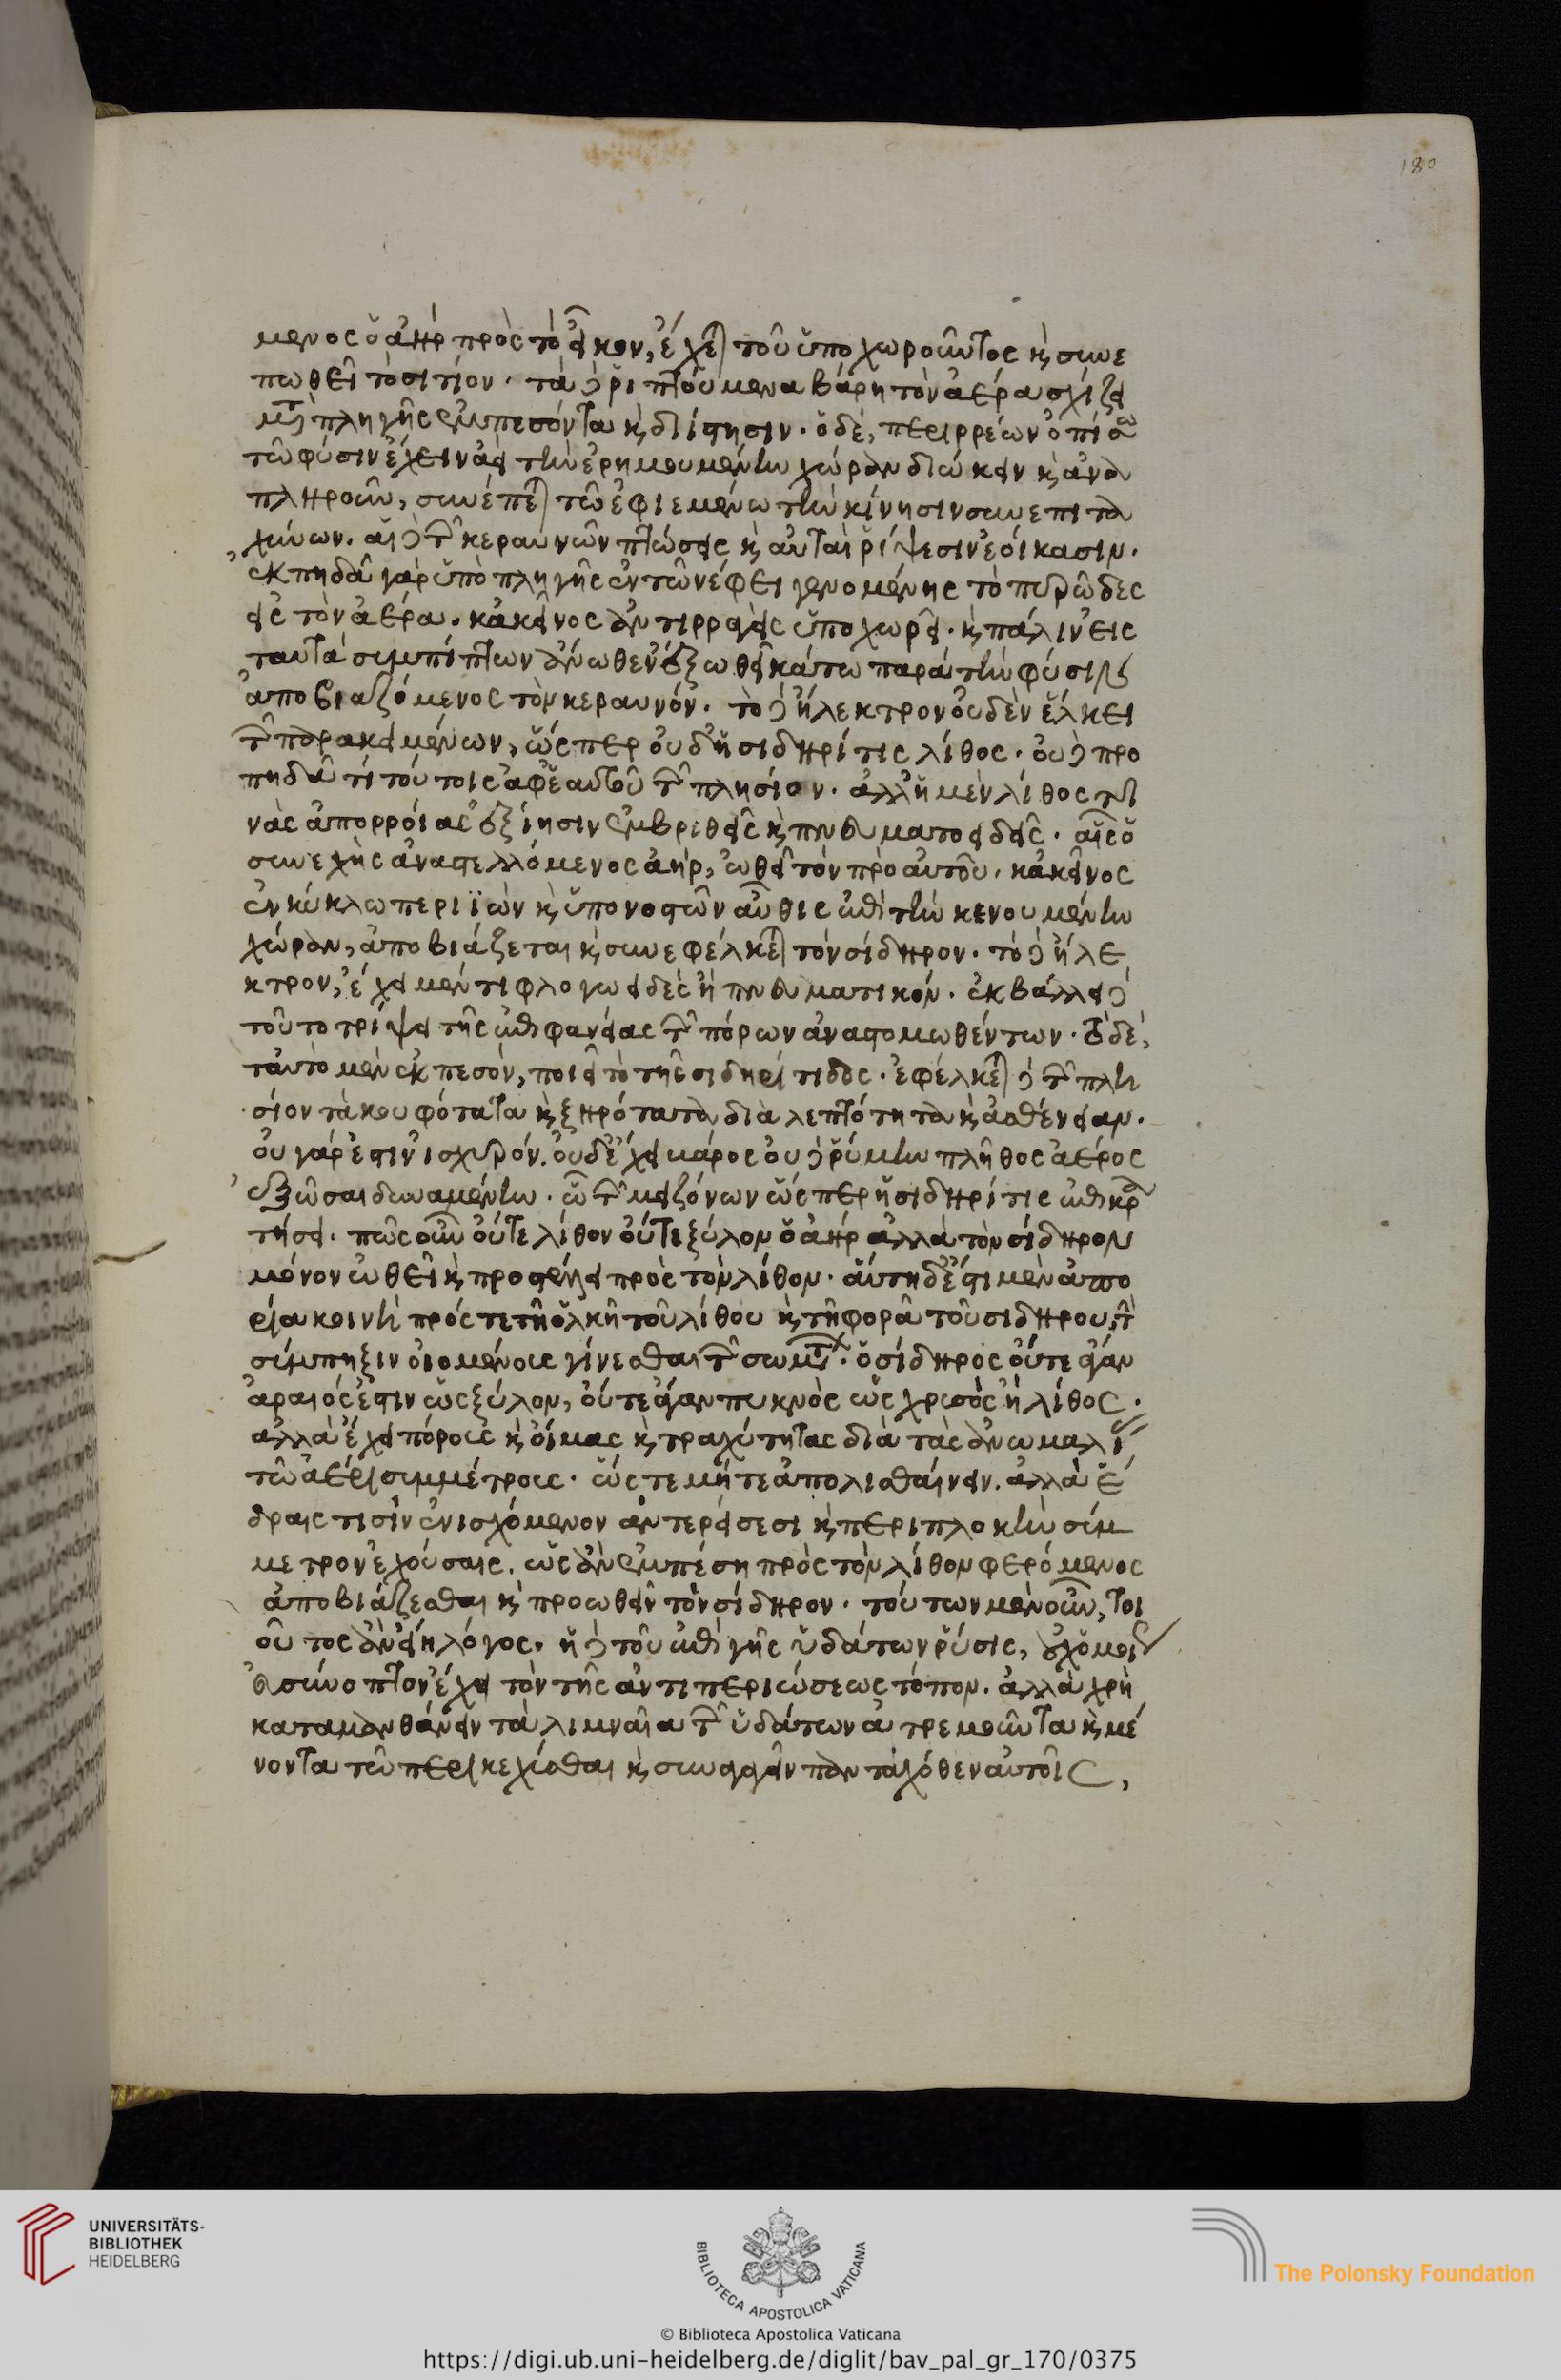 180
μενος ὁ ἀὴρ πρὸς τὸ εἶκον, ἔχεται τοῦ ὑποχωροῦντος καὶ συνε
πωθεῖ τὸ σιτίον. τὰ δὲ ῥιπτούμενα βάρη τὸν ἀέρα σχίζει
μετὰ πληγῆς ἐμπεσόντα καὶ διίστησιν. ὁ δὲ, περιρρέων ὀπίσω
τῶ φύσιν ἔχειν ἀεὶ τὴν ἐρημουμένην χώραν διώκειν καὶ ἀνα
πληροῦν, συνέπεται τῶ ἐφιεμένω τὴν κίνησιν συνεπιτα
χύνων. αἱ δὲ τῶν κεραυνῶν πτώσεις καὶ αὐταὶ ῥίψεσιν ἐοίκασιν.
ἐκπηδᾶ γὰρ ὑπὸ πληγῆς ἐν τῶ νέφει γενομένης τὸ πυρῶδες
εἰς τὸν ἀέρα. κἀκεῖνος ἀντιρραγεὶς ὑποχωρεῖ. καὶ πάλιν εἰς
ταυτὰ συμπίπτων ἄνωθεν ἐξωθεῖ κάτω παρὰ τὴν φύσιν
ἀποβιαζόμενος τὸν κεραυνόν. τὸ δὲ ἤλεκτρον οὐδὲν ἕλκει
τῶν παρακειμένων, ὥσπερ οὐδ' ἡ σιδηρίτις λίθος. οὐδὲ προ
πηδᾶ τί τούτοις ἀφ' ἑαυτοῦ τῶν πλησίον. ἀλλ' ἡ μὲν λίθος τι
νὰς ἀπορροίας ἐξίησιν ἐμβριθεῖς καὶ πνευματοειδεῖς. αἷς ὁ
συνεχὴς ἀναστελλόμενος ἀὴρ, ὠθεῖ τὸν πρὸ αὐτοῦ. κἀκεῖνος
ἐν κύκλω περιϊὼν καὶ ὑπονοστῶν αὖθις ἐπὶ τὴν κενουμένην
χώραν, ἀποβιάζεται καὶ συνεφέλκεται τὸν σίδηρον. τὸ δὲ ἤλε
κτρον, ἔχει μέν τι φλογωειδὲς ἢ πνευματικόν. ἐκβάλλει δὲ
τοῦτο τρίψει τῆς ἐπιφανείας τῶν πόρων ἀναστομωθέντων. τὸ δὲ,
ταὐτὸ μὲν ἐκπεσὸν, ποιεῖ τὸ τῆς σιδηρίτιδος. ἐφέλκεται δὲ τῶν πλη
σίον τὰ κουφότατα καὶ ξηρότατα διὰ λεπτότητα καὶ ἀσθένειαν.
οὐ γάρ ἐστιν ἰσχυρόν. οὐδ' ἔχει βάρος οὐδὲ ῥύμην πλῆθος ἀέρος
ἐξῶσαι δυναμένην. ὧ τῶν μειζόνων ὥσπερ ἡ σιδηρίτις ἐπικρα
τήσει. πῶς οὖν οὔτε λίθον οὔτε ξύλον ὁ ἀὴρ ἀλλὰ τὸν σίδηρον
μόνον ὠθεῖ καὶ προστέλλει πρὸς τὸν λίθον. αὕτη δ' ἐστὶ μὲν ἀπο
ρία κοινὴ πρός τε τῆ ὁλκῆ τοῦ λίθου καὶ τῆ φορᾶ τοῦ σιδήρου, τὴν
σύμπηξιν οἰομένοις γίνεσθαι τῶν σωμάτων. ὁ σίδηρος οὔτε ἄγαν
ἀραιός ἐστιν ὡς ξύλον, οὔτε ἄγαν πυκνὸς ὡς χρυσὸς ἢ λίθος.
ἀλλὰ ἔχει πόρους καὶ οἴμας καὶ τραχύτητας διὰ τὰς ἀνωμαλί
τῶ ἀέρι συμμέτρους. ὥστε μήτε ἀπολισθαίνειν. ἀλλὰ ἕ
δραις τισὶν ἐνισχόμενον ἀντερείσεσι καὶ περιπλοκὴν σύμ
μετρον ἐχούσαις. ὡς ἂν ἐμπέση πρὸς τὸν λίθον φερόμενος
ἀποβιάζεσθαι καὶ προωθεῖν τὸν σίδηρον. τούτων μὲν οὖν, τοι
οῦτος ἂν εἴη λόγος. ἡ δὲ τοῦ ἐπὶ γῆς ὑδάτων ῥύσις, οὐχ ὁμοι
εὐσύνοπτον ἔχει τὸν τῆς ἀντιπεριώσεως τόπον. ἀλλὰ χρὴ
καταμανθάνειν τὰ λιμναῖα τῶν ὑδάτων ἀτρεμοῦντα καὶ μέ
νοντα τῶ περικεχύσθαι καὶ συνηγεῖν πανταχόθεν αὐτοῖς,
UNIVERSITÄTS-
BIBLIOTHEK
HEIDELBERG
BIBLIOTECA APOSTOLICA VATICANA
The Polonsky Foundation
© Biblioteca Apostolica Vaticana
https://digi.ub.uni-heidelberg.de/diglit/bav_pal_gr_170/0375